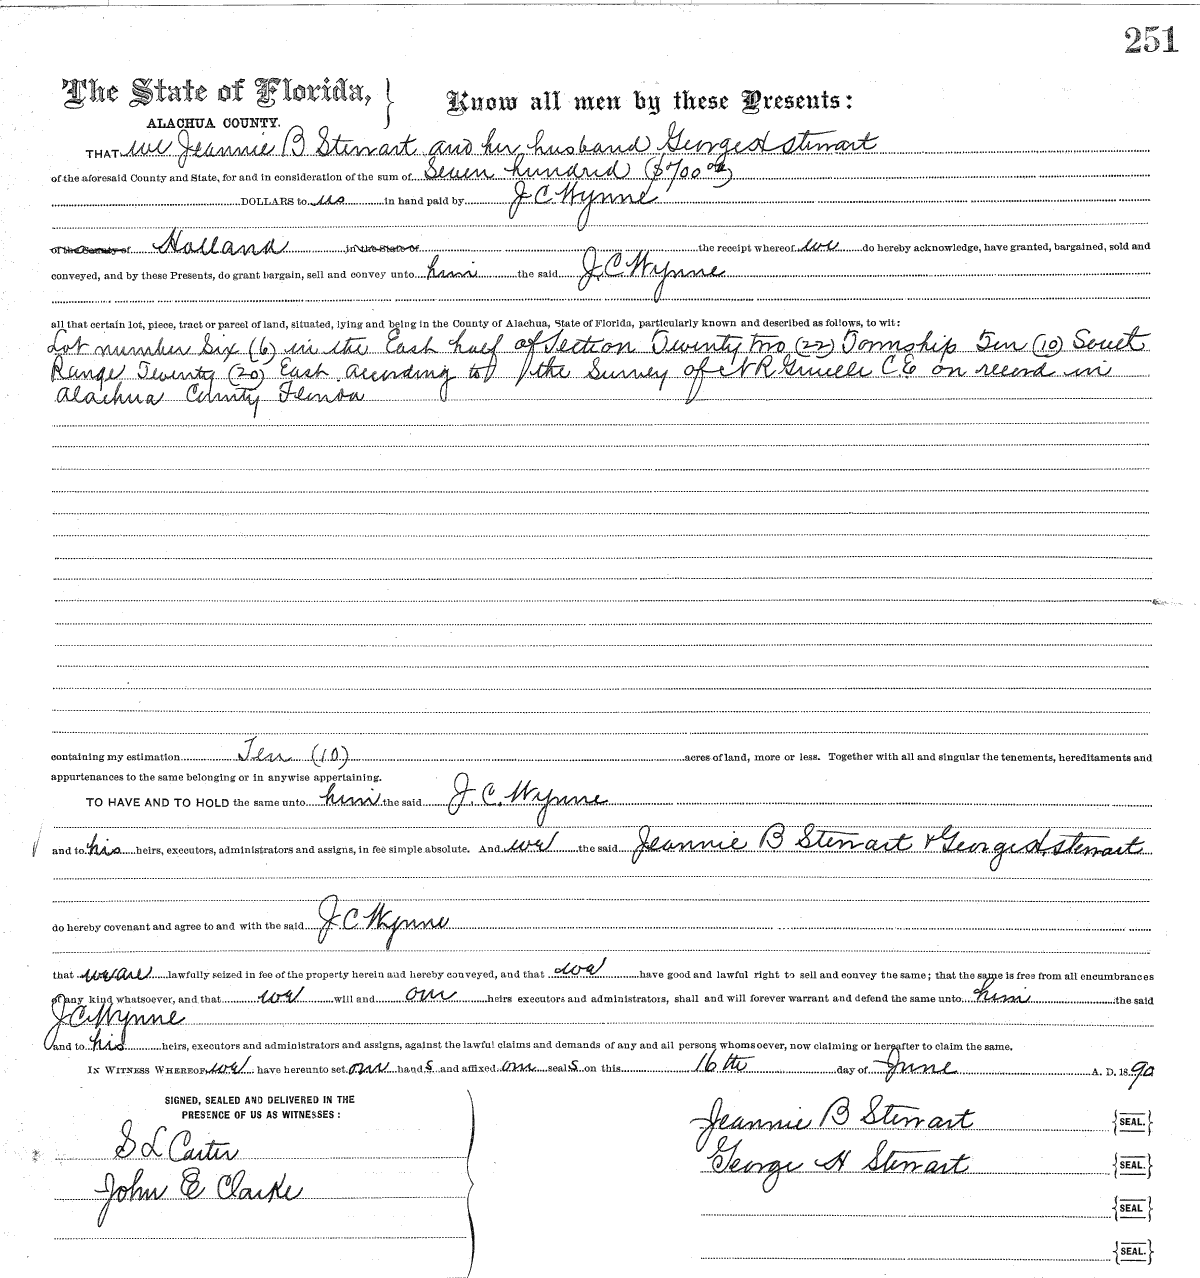 251
The State of Florida, } Know all men by these Presents:
ALACHUA COUNTY.
THAT we Jeannie B Stewart and her husband George H Stewart
of the aforesaid County and State, for and in consideration of the sum of Seven hundred ($700 00/100)
DOLLARS to us in hand paid by J. C. Wynne
of the County of Holland in the State of the receipt whereof we do hereby acknowledge, have granted, bargained, sold and
conveyed, and by these Presents, do grant bargain, sell and convey unto him the said J. C. Wynne
all that certain lot, piece, tract or parcel of land, situated, lying and being in the County of Alachua, State of Florida, particularly known and described as follows, to wit:
Lot number Six (6) in the East half of Section Twenty two (22) Township Ten (10) South
Range Twenty (20) East according to the Survey of N R C E on record in
Alachua County Florida
containing my estimation Ten (10) acres of land, more or less. Together with all and singular the tenements, hereditaments and
appurtenances to the same belonging or in anywise appertaining.
TO HAVE AND TO HOLD the same unto him the said J. C. Wynne
and to his heirs, executors, administrators and assigns, in fee simple absolute. And we the said Jeannie B Stewart & George H. Stewart
do hereby covenant and agree to and with the said J C Wynne
that we are lawfully seized in fee of the property herein and hereby conveyed, and that we have good and lawful right to sell and convey the same; that the same is free from all encumbrances
of any kind whatsoever, and that we will and our heirs executors and administrators, shall and will forever warrant and defend the same unto him the said
J. C. Wynne
and to his heirs, executors and administrators and assigns, against the lawful claims and demands of any and all persons whomsoever, now claiming or hereafter to claim the same.
IN WITNESS WHEREOF, we have hereunto set our hand s and affixed our seal s on this 16th day of June A. D. 18 90
SIGNED, SEALED AND DELIVERED IN THE
PRESENCE OF US AS WITNESSES:
Jeannie B Stewart {SEAL.}
S L Carter
George H Stewart {SEAL.}
John E Clarke
{SEAL}
{SEAL.}